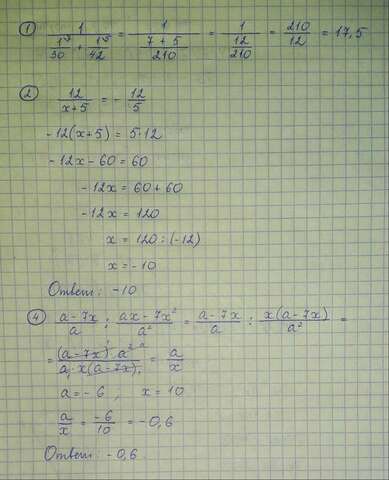 ① 1/(1/30 + 1/42) = 1/((7 + 5)/210) = 1/(12/210) = 210/12 = 17,5
② 12/(x+5) = - 12/5
-12(x+5) = 5·12
-12x - 60 = 60
-12x = 60 + 60
-12x = 120
x = 120 : (-12)
x = -10
Ответ: -10
④ (a - 7x)/a : (ax - 7x²)/a² = (a - 7x)/a : x(a - 7x)/a² =
= (a - 7x) · a²/(a · x(a - 7x)) = a/x
a = -6 , x = 10
a/x = -6/10 = -0,6
Ответ: -0,6